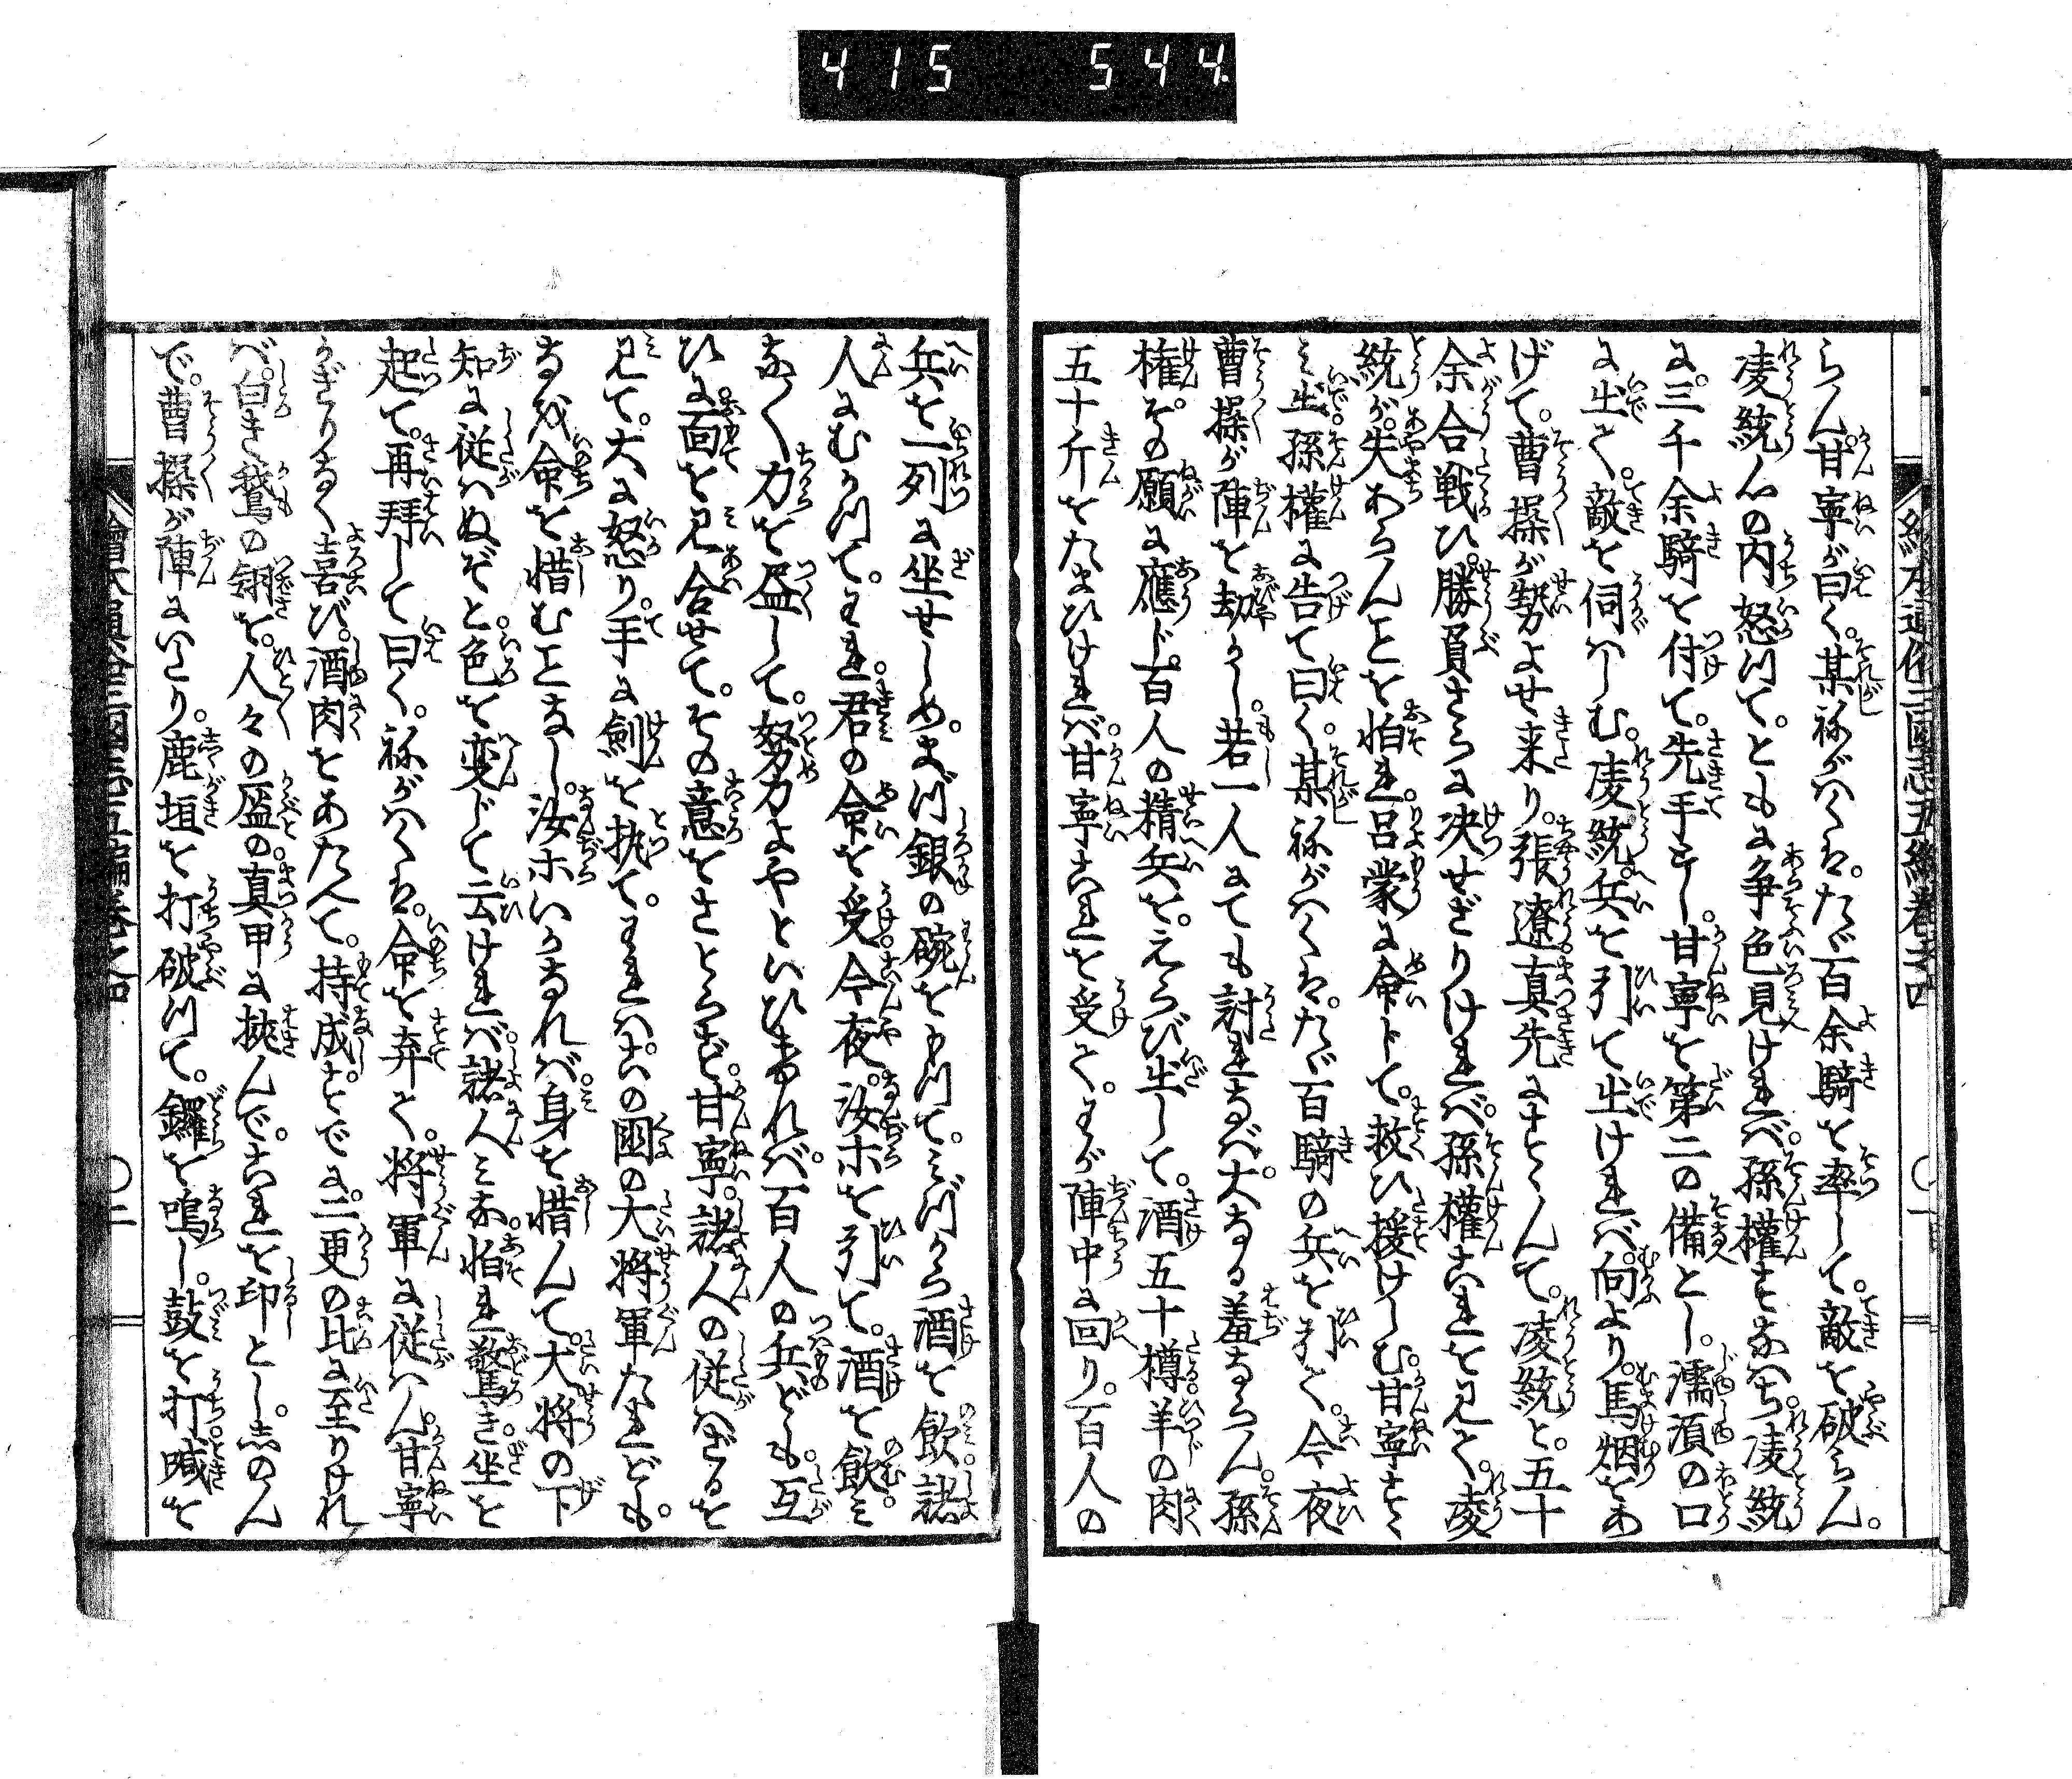 415 544
らん。甘寧が曰く。某ねがハくハ。たゞ百余騎を率して。敵を破らん。
凌統心の内怒つて。ともに争色見けれバ。孫權すなハち。凌統
に三千余騎を付て。先手とし。甘寧を第二の備とし。濡須の口
に出て。敵を伺ハしむ。凌統兵を引て出けれバ。向より。馬烟をあ
げて。曹操が勢よせ来り。張遼真先にすゝんで。凌統と。五十
余合戦ひ。勝負さらに决せざりけれバ。孫權これを見て。凌
統が失あらんことを怕れ。呂蒙に命じて。救ひ援けしむ。甘寧すゝ
ミ出。孫權に告て曰く。某ねがハくハ。たゞ百騎の兵を引て。今夜
曹操が陣を劫かし。若一人にても討れなバ。大なる羞ならん。孫
権その願に應じ。百人の精兵を。えらび出して。酒五十樽羊の肉
五十斤をたまひけれバ。甘寧これを受て。わが陣中に回り。百人の
兵を一列に坐せしめ。まづ銀の碗をもつて。ミづから酒を飲。諸
人にむかつて。われ君の命を受。今夜汝ホを引て。酒を飲ミ
なく力を盡して。努力よやといひけれバ。百人の兵ども。互
ひに面を見合せて。その意をさとらず。甘寧。諸人の従ハざるを
見て。大に怒り。手に剣を执て。われハこの國の大将軍たれども。
なを命を惜むことなし。汝ホいかなれバ。身を惜んで。大将の下
知に従ハぬぞと。色を変じて云けれバ。諸人ミな怕れ驚き。坐を
起て。再拜して曰く。ねがハくハ。命を弃て。将軍に従ハん。甘寧
かぎりなく喜び。酒肉をあたへて。持成すでに。二更の比に至りけれ
バ。白き鵞の翎を。人々の盔の真甲に挾んで。これを印とし。忍のん
で。曹操が陣にいたり。鹿垣を打破つて。鑼を鳴し。鼓を打。喊を